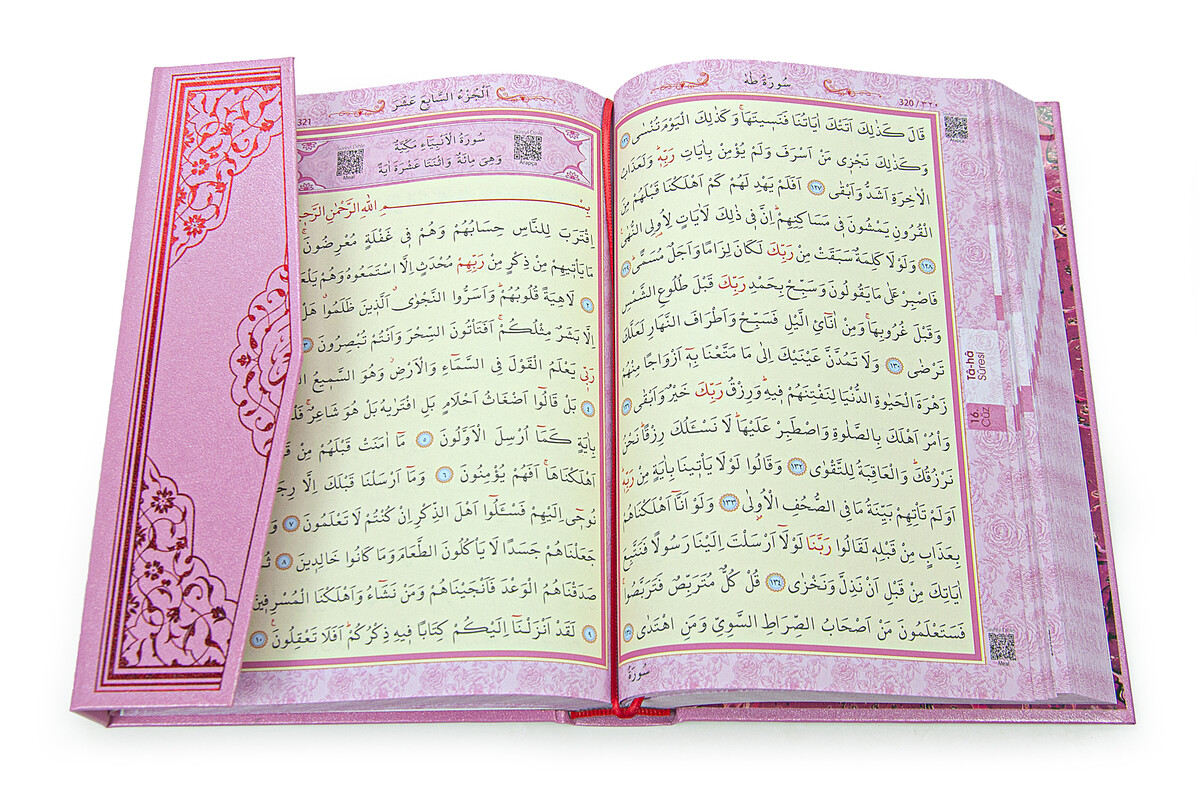 سُورَةُ طٰهٰ
320 / ٣٢٠
قَالَ كَذٰلِكَ اَتَتْكَ اٰيَاتُنَا فَنَسٖيتَهَاۚ وَكَذٰلِكَ الْيَوْمَ تُنْسٰى ﴿١٢٦﴾
وَكَذٰلِكَ نَجْزٖى مَنْ اَسْرَفَ وَلَمْ يُؤْمِنْ بِاٰيَاتِ رَبِّهٖؕ وَلَعَذَابُ
الْاٰخِرَةِ اَشَدُّ وَاَبْقٰى ﴿١٢٧﴾ اَفَلَمْ يَهْدِ لَهُمْ كَمْ اَهْلَكْنَا قَبْلَهُمْ مِنَ
الْقُرُونِ يَمْشُونَ فٖى مَسَاكِنِهِمْؕ اِنَّ فٖى ذٰلِكَ لَاٰيَاتٍ لِاُولِى النُّهٰى
﴿١٢٨﴾ وَلَوْلَا كَلِمَةٌ سَبَقَتْ مِنْ رَبِّكَ لَكَانَ لِزَامًا وَاَجَلٌ مُسَمًّىؕ ﴿١٢٩﴾
فَاصْبِرْ عَلٰى مَا يَقُولُونَ وَسَبِّحْ بِحَمْدِ رَبِّكَ قَبْلَ طُلُوعِ الشَّمْسِ
وَقَبْلَ غُرُوبِهَاۚ وَمِنْ اٰنَآئِ الَّيْلِ فَسَبِّحْ وَاَطْرَافَ النَّهَارِ لَعَلَّكَ
تَرْضٰى ﴿١٣٠﴾ وَلَا تَمُدَّنَّ عَيْنَيْكَ اِلٰى مَا مَتَّعْنَا بِهٖٓ اَزْوَاجًا مِنْهُمْ
زَهْرَةَ الْحَيٰوةِ الدُّنْيَا لِنَفْتِنَهُمْ فٖيهِؕ وَرِزْقُ رَبِّكَ خَيْرٌ وَاَبْقٰى ﴿١٣١﴾
وَأْمُرْ اَهْلَكَ بِالصَّلٰوةِ وَاصْطَبِرْ عَلَيْهَاؕ لَا نَسْـَٔلُكَ رِزْقًاؕ نَحْنُ
نَرْزُقُكَؕ وَالْعَاقِبَةُ لِلتَّقْوٰى ﴿١٣٢﴾ وَقَالُوا لَوْلَا يَأْتٖينَا بِاٰيَةٍ مِنْ رَبِّهٖؕ
اَوَلَمْ تَأْتِهِمْ بَيِّنَةُ مَا فِى الصُّحُفِ الْاُولٰى ﴿١٣٣﴾ وَلَوْ اَنَّٓا اَهْلَكْنَاهُمْ
بِعَذَابٍ مِنْ قَبْلِهٖ لَقَالُوا رَبَّنَا لَوْلَٓا اَرْسَلْتَ اِلَيْنَا رَسُولًا فَنَتَّبِعَ
اٰيَاتِكَ مِنْ قَبْلِ اَنْ نَذِلَّ وَنَخْزٰى ﴿١٣٤﴾ قُلْ كُلٌّ مُتَرَبِّصٌ فَتَرَبَّصُواۚ
فَسَتَعْلَمُونَ مَنْ اَصْحَابُ الصِّرَاطِ السَّوِىِّ وَمَنِ اهْتَدٰى ﴿١٣٥﴾
سُورَةُ
Arapça
Tâ-hâ
Sûresi
16.
Cüz
Meal
اَلْجُزْءُ السَّابِعَ عَشَرَ
321
سُورَةُ الْاَنْبِيَاءِ مَكِّيَّةٌ
وَهِىَ مِائَةٌ وَاثْنَتَا عَشْرَةَ اٰيَةً
Arapça
Meal
بِسْمِ اللّٰهِ الرَّحْمٰنِ
اِقْتَرَبَ لِلنَّاسِ حِسَابُهُمْ وَهُمْ فٖى غَفْلَةٍ مُعْرِضُونَۚ
مَا يَأْتٖيهِمْ مِنْ ذِكْرٍ مِنْ رَبِّهِمْ مُحْدَثٍ اِلَّا اسْتَمَعُوهُ وَهُمْ
﴿٢﴾ لَاهِيَةً قُلُوبُهُمْؕ وَاَسَرُّوا النَّجْوٰىۗ اَلَّذٖينَ ظَلَمُواۗ هَلْ
اِلَّا بَشَرٌ مِثْلُكُمْۚ اَفَتَأْتُونَ السِّحْرَ وَاَنْتُمْ تُبْصِرُونَ ﴿٣﴾
رَبّٖى يَعْلَمُ الْقَوْلَ فِى السَّمَٓاءِ وَالْاَرْضِؗ وَهُوَ السَّمٖيعُ
﴿٤﴾ بَلْ قَالُٓوا اَضْغَاثُ اَحْلَامٍ بَلِ افْتَرٰيهُ بَلْ هُوَ شَاعِرٌۚ
بِاٰيَةٍ كَمَٓا اُرْسِلَ الْاَوَّلُونَ ﴿٥﴾ مَٓا اٰمَنَتْ قَبْلَهُمْ مِنْ
اَهْلَكْنَاهَاۚ اَفَهُمْ يُؤْمِنُونَ ﴿٦﴾ وَمَٓا اَرْسَلْنَا قَبْلَكَ اِلَّا
نُوحٖٓى اِلَيْهِمْ فَسْـَٔلُٓوا اَهْلَ الذِّكْرِ اِنْ كُنْتُمْ لَا تَعْلَمُونَ ﴿٧﴾
جَعَلْنَاهُمْ جَسَدًا لَا يَأْكُلُونَ الطَّعَامَ وَمَا كَانُوا خَالِدٖينَ ﴿٨﴾
صَدَقْنَاهُمُ الْوَعْدَ فَاَنْجَيْنَاهُمْ وَمَنْ نَشَٓاءُ وَاَهْلَكْنَا الْمُسْرِفٖينَ
﴿٩﴾ لَقَدْ اَنْزَلْنَٓا اِلَيْكُمْ كِتَابًا فٖيهِ ذِكْرُكُمْؕ اَفَلَا تَعْقِلُونَ ﴿١٠﴾